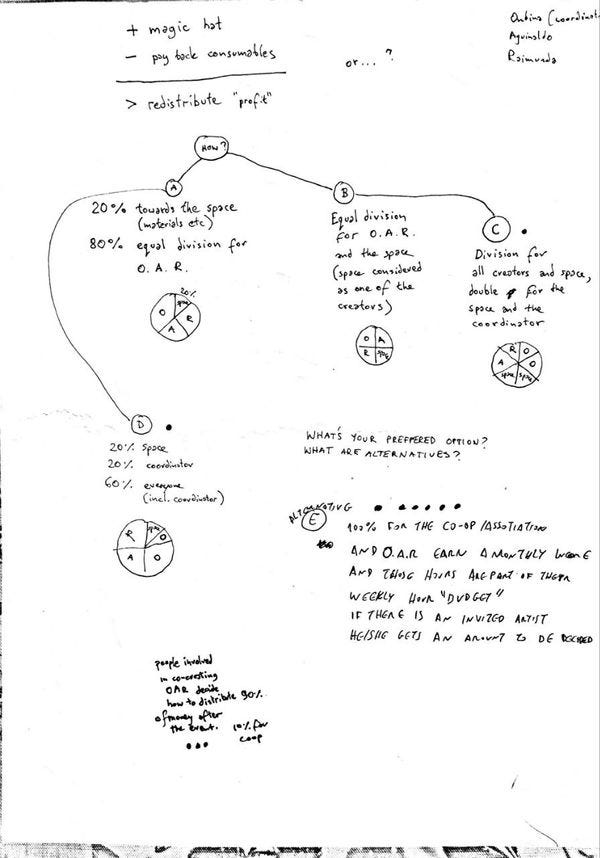 + magic hat
- pay back consumables
> redistribute "profit"
or... ?
(coordinat
Aguinaldo
Raimunda
HOW?
A
20% towards the space
(materials etc)
80% equal division for
O. A. R.
20%
space
O
R
A
B
Equal division
for O.A.R.
and the space
(space considered
as one of the
creators)
O A
R space
C
Division for
all creators and space,
double for the
space and the
coordinator
R O
A O
space space
D
20% space
20% coordinator
60% everyone
(incl. coordinator)
R space
O
A O
WHAT'S YOUR PREFFERED OPTION?
WHAT ARE ALTERNATIVES?
ALTERNATIVE
E
100% FOR THE CO-OP/ASSOTIATION
AND O.A.R EARN A MONTHLY WAGE
AND THOSE HOURS ARE PART OF THEIR
WEEKLY HOUR "BUDGET"
IF THERE IS AN INVITED ARTIST
HE/SHE GETS AN AMOUNT TO BE DECIDED
people involved
in co-creating
OAR decide
how to distribute 90%
of money after
the event. 10% for
coop